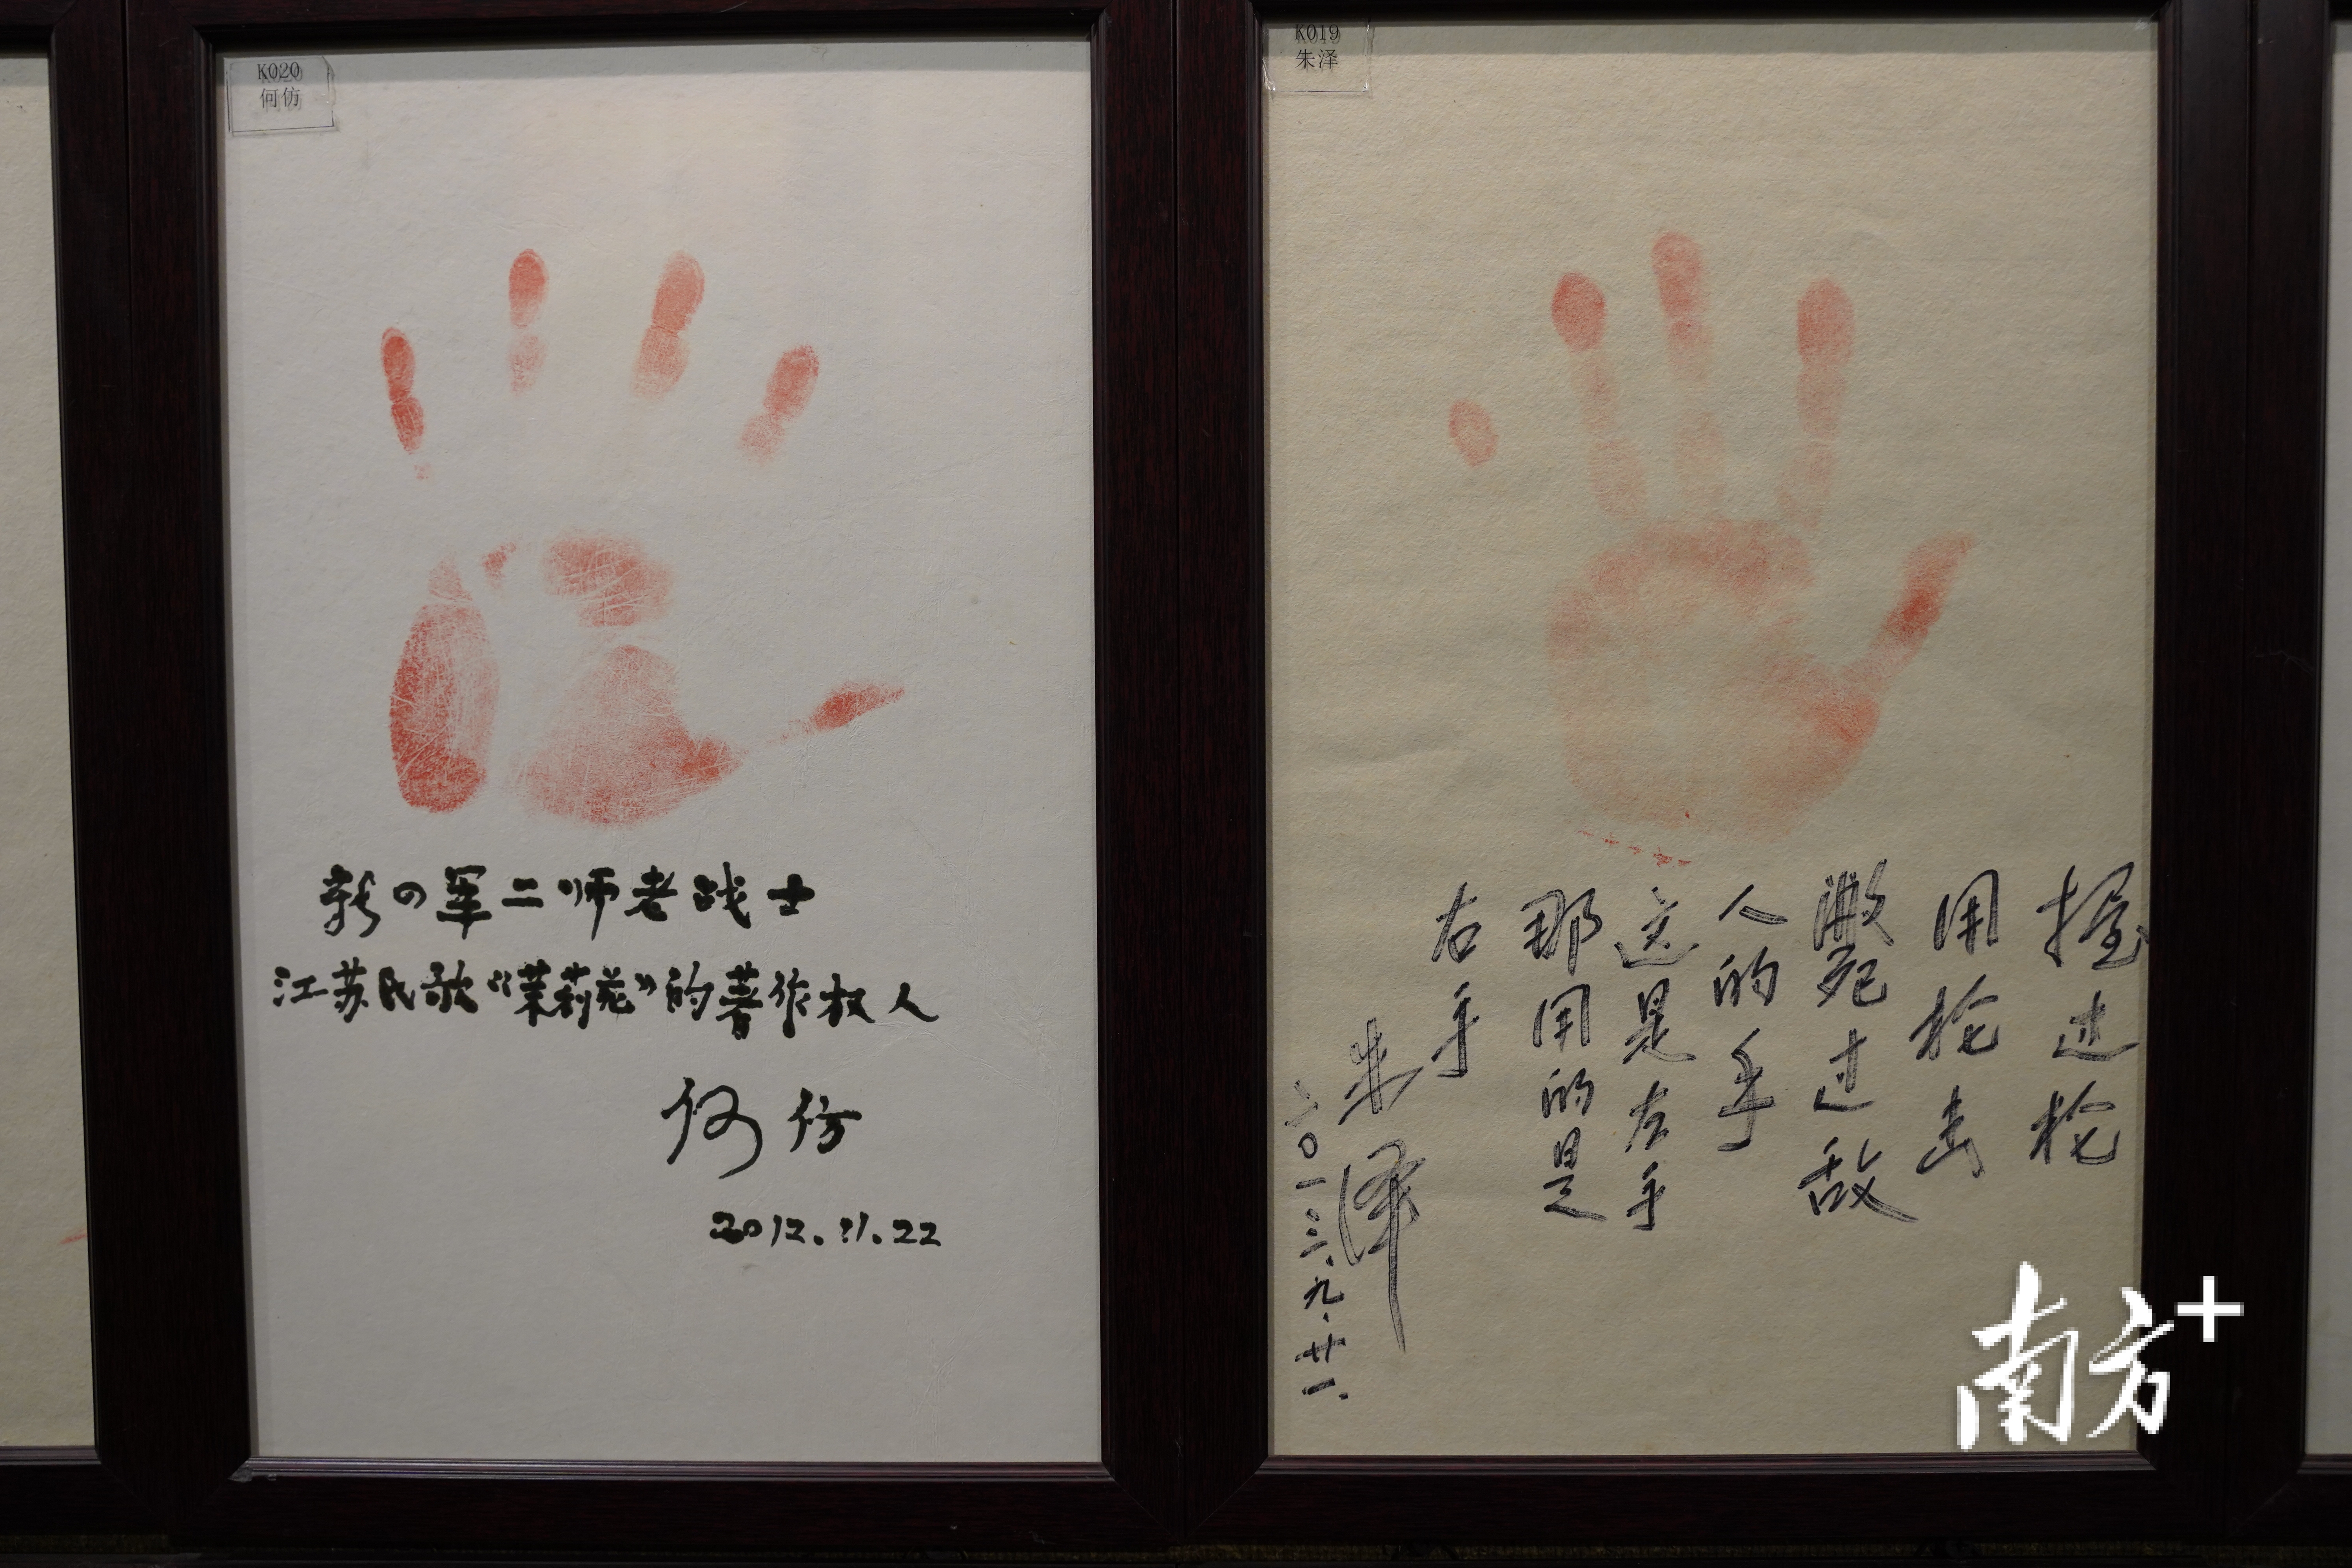 K020
何仿
新四军二师老战士
江苏民歌“茉莉花”的著作权人
何仿
2012.11.22
K019
朱泽
握过枪
用枪击
毙死过敌
人的手
这是左手
那用的是
右手
朱泽
二〇一三、九、廿一、
南方+